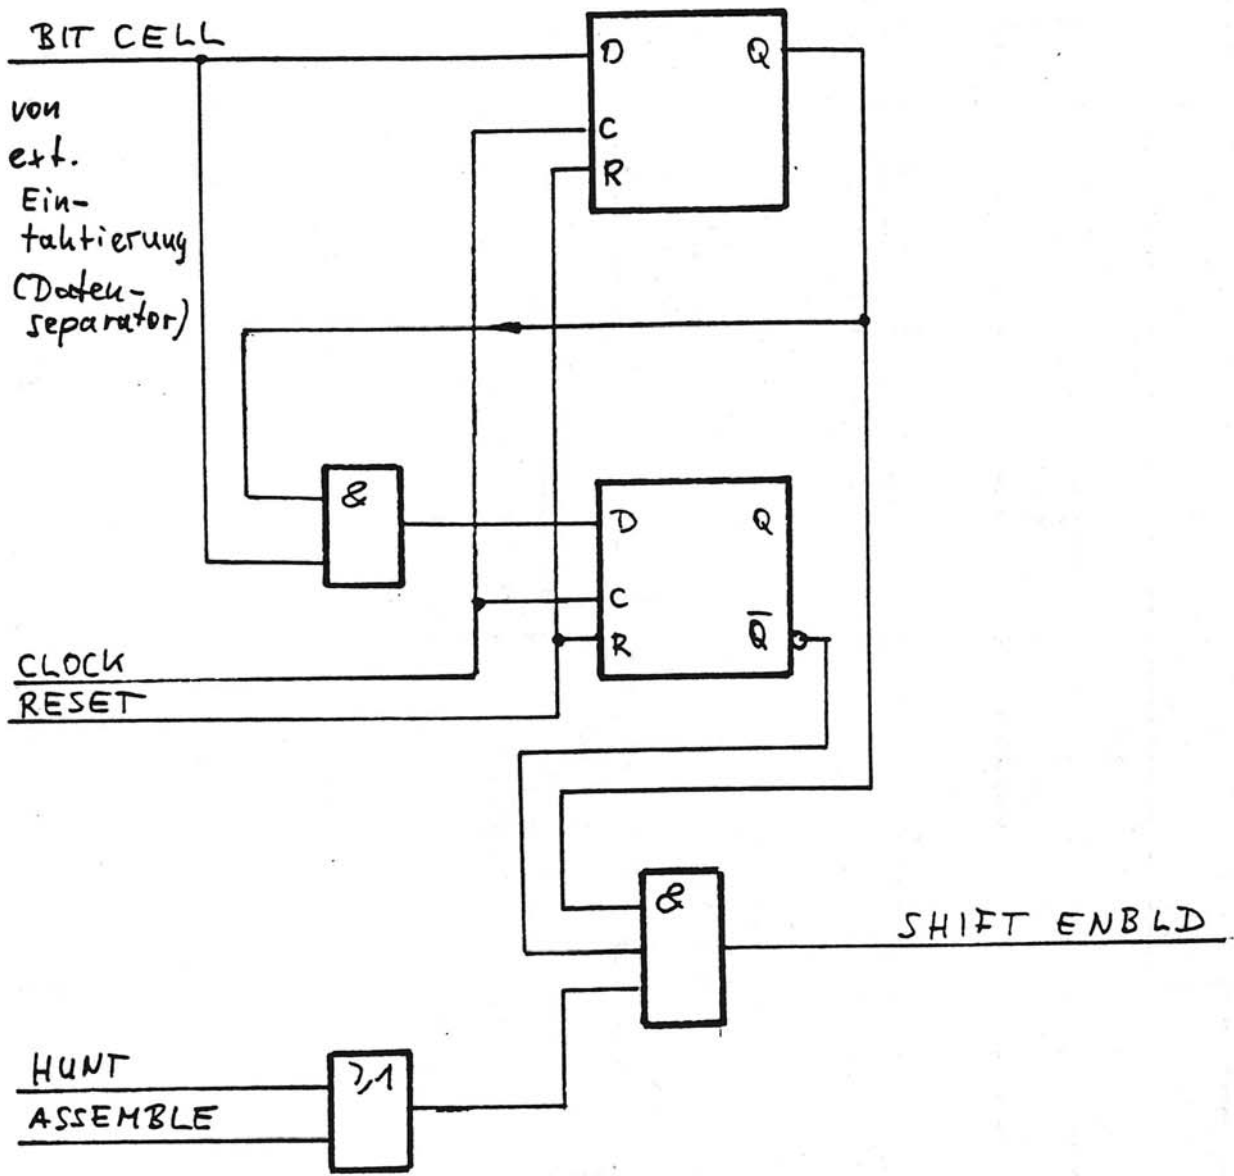 BIT CELL
von
ext.
Ein-
taktierung
(Daten-
separator)
D Q
C
R
&
D Q
C
R Q̅
CLOCK
RESET
&
SHIFT ENBLD
HUNT
ASSEMBLE
≥1